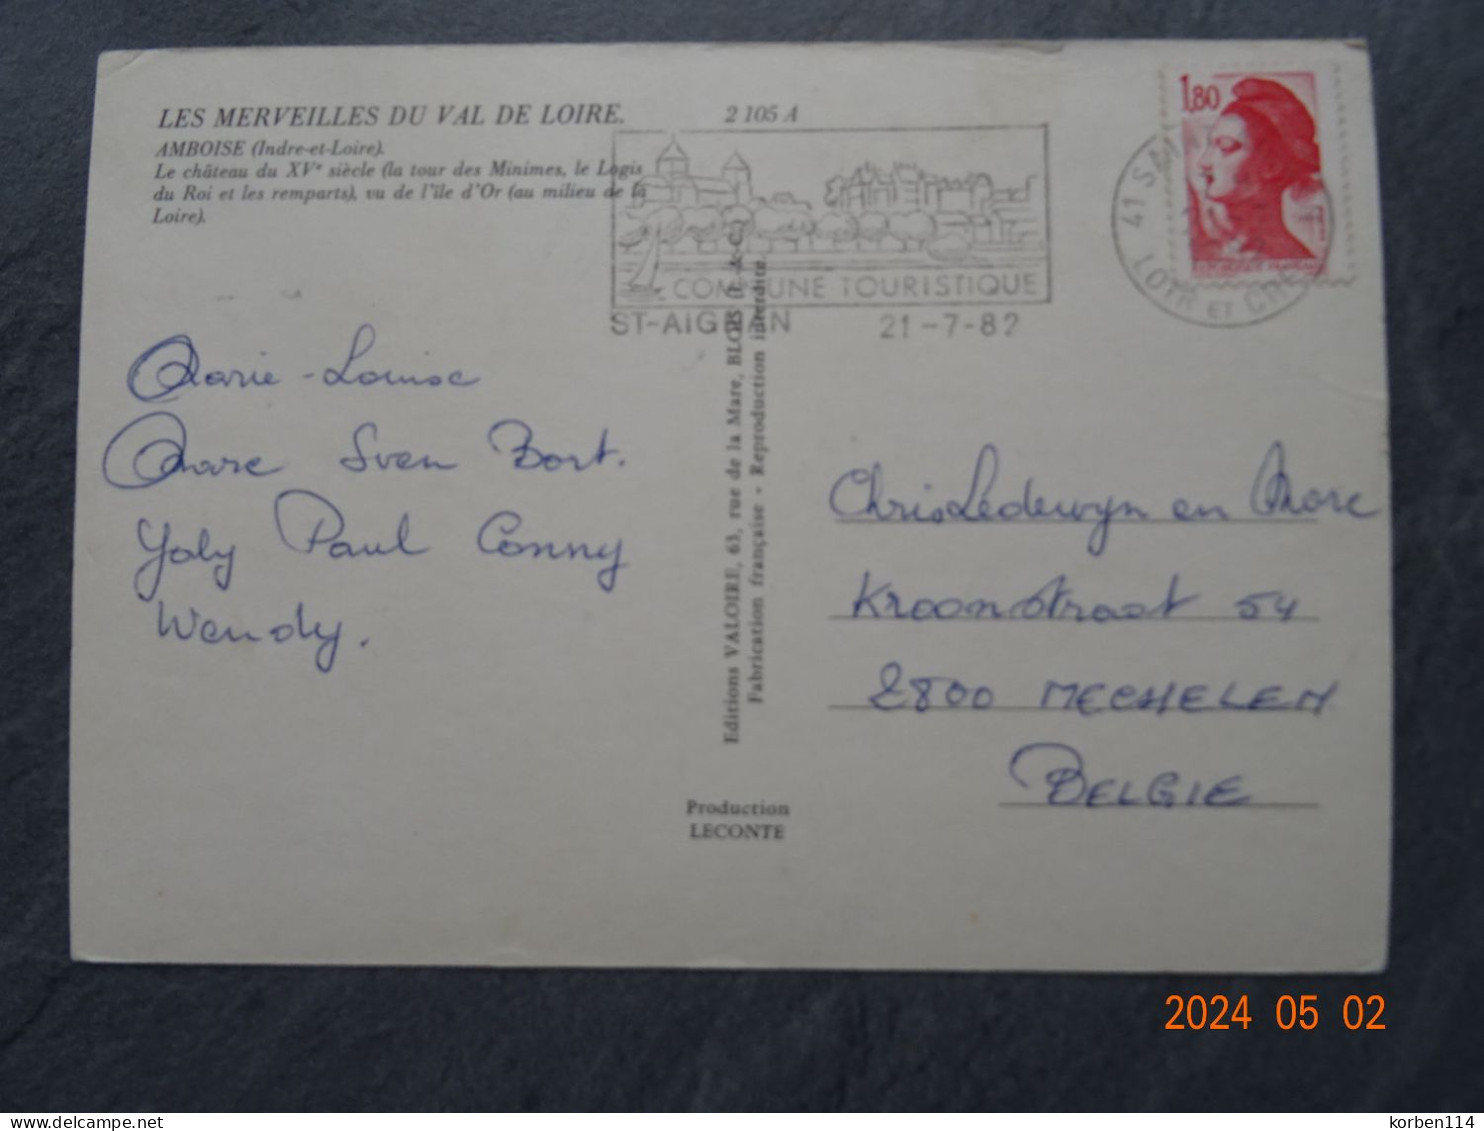 LES MERVEILLES DU VAL DE LOIRE.
2 105 A
AMBOISE (Indre-et-Loire).
Le château du XVe siècle (la tour des Minimes, le Logis
du Roi et les remparts), vu de l'île d'Or (au milieu de la
Loire).
COMMUNE TOURISTIQUE
ST-AIGNAN 21-7-82
1,80
41 SAINT
LOIR ET CHER
Marie-Louise
Marc Sven Bort.
Yoly Paul Conny
Wendy.
Editions VALOIRE, 63, rue de la Mare, BLOIS (L.-&-C.)
Fabrication française - Reproduction interdite.
Chris Ledewyn en Marc
Kroonstraat 54
2800 MECHELEN
BELGIE
Production
LECONTE
2024 05 02
korben114